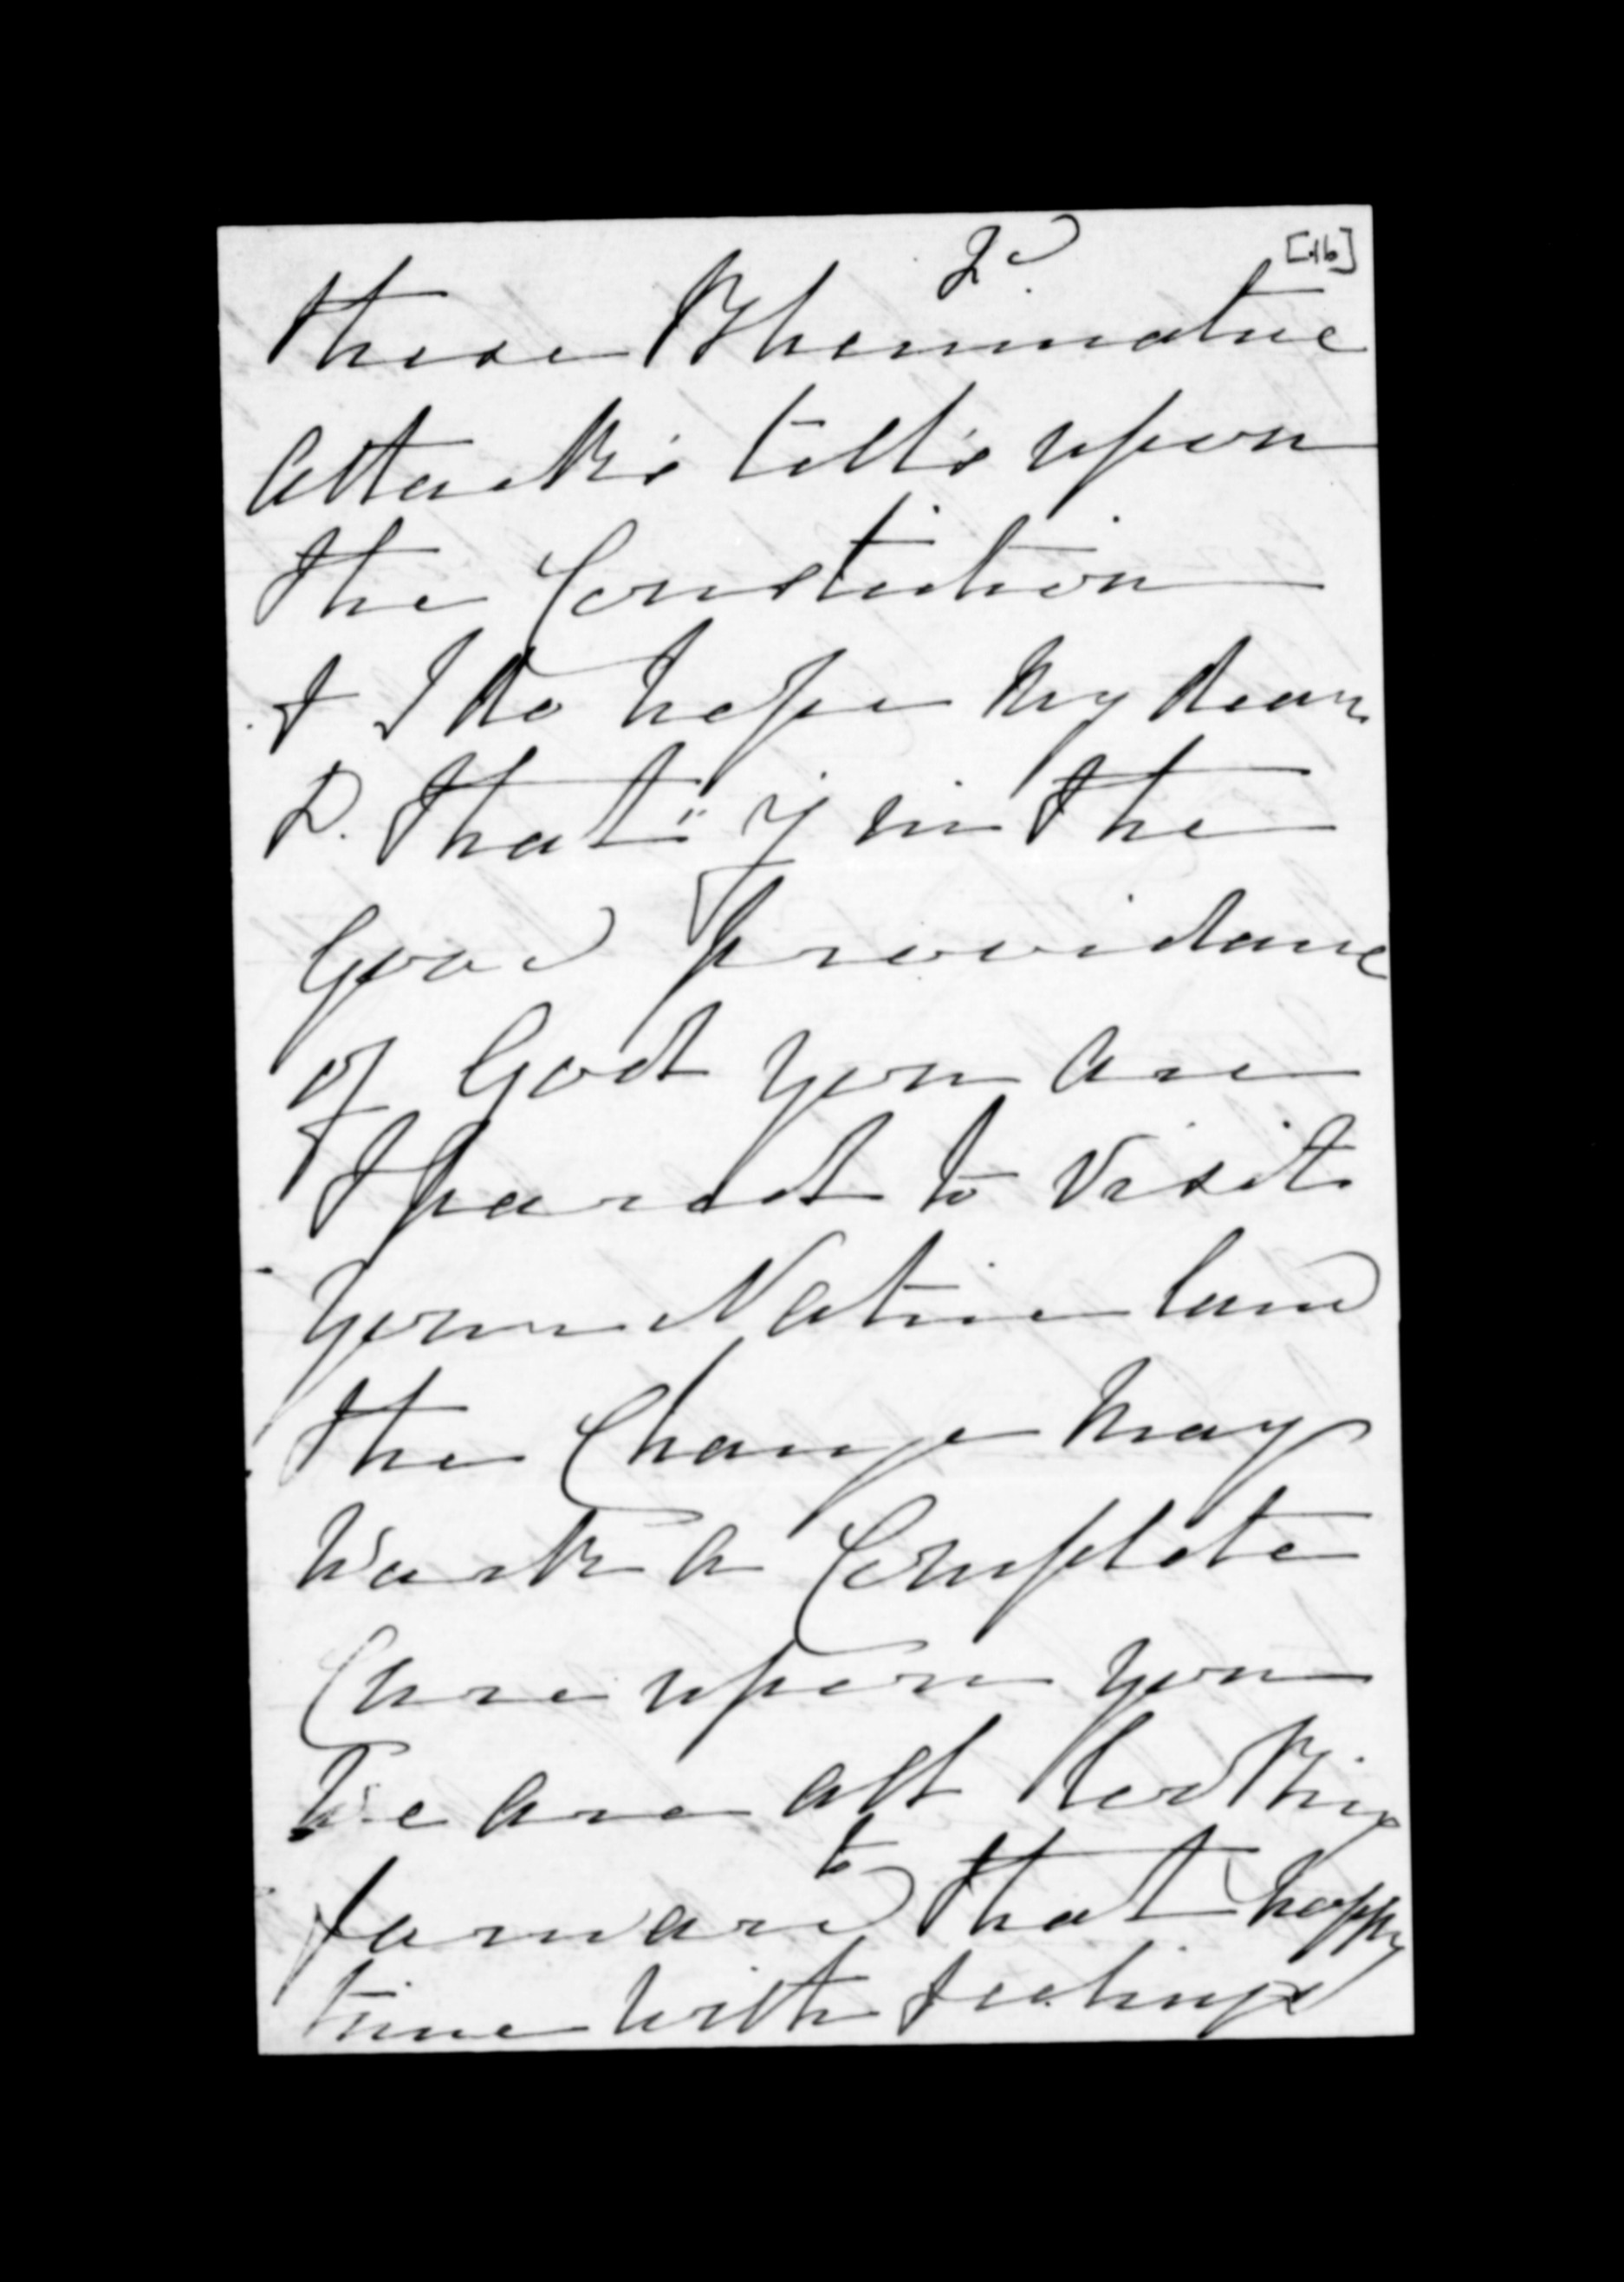 2d
[16]
these Rheumatic
attacks tells upon
the Constution
& I do hope my dear
D. that if in the
Good Providance
of God you are
spared to visit
your Native land
the Change may
work a Complete
Cure upon you
We are all looking
forward to that happy
time with feelings